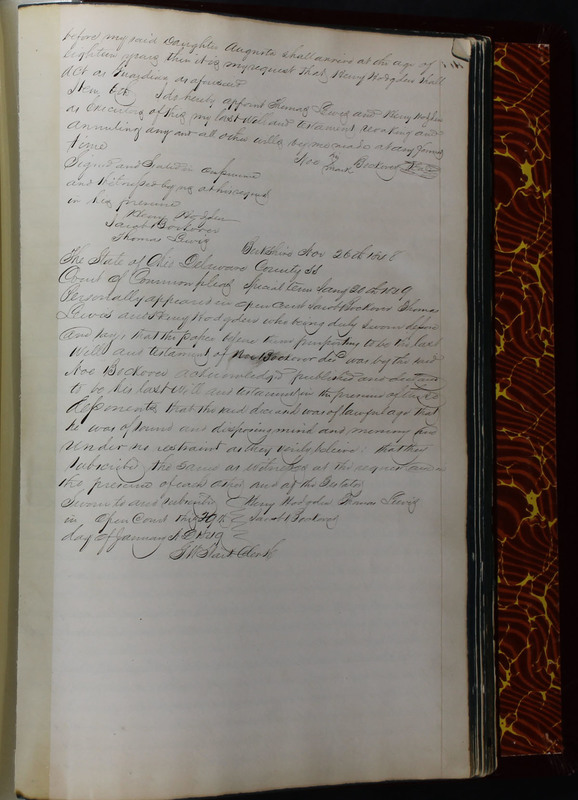 before my said Daughter Augusta shall arrive at the age of
Eighteen years then it is my request that Henry Hodgden shall
act as Guardian as aforesaid
Item 6th I do hereby appoint Thomas Lewis and Henry Hodgden
as Executors of this my last will and testament revoking and
annulling any and all other wills by me made at any former
time
Noe his mark Bockover Seal
Signed and Sealed in our presence
and witnessed by us at his request
in his presence
Henry Hodgden
Jacob Bockover
Thomas Lewis
Berkshire Nov 26th 1848
The State of Ohio Delaware County SS
Court of Common pleas Special term Jany 30th 1849
Personally appeared in open Court Jacob Bockover Thomas
Lewis and Henry Hodgden who being duly sworn depose
and say that the paper before them purporting to be the last
Will and testament of Noe Bockover decd was by the said
Noe Bockover acknowledged published and declared
to be his last Will and testament in the presence of these
deponents that the said deceased was of lawful age that
he was of sound and disposing mind and memory and
Under no restraint as they verily believe : that they
subscribed the same as witnesses at the request and in
the presence of each other and of the testator
Sworn to and subscribed Henry Hodgden Thomas Lewis
in Open Court this 29th Jacob Bockover
day of January AD 1849
Clerk